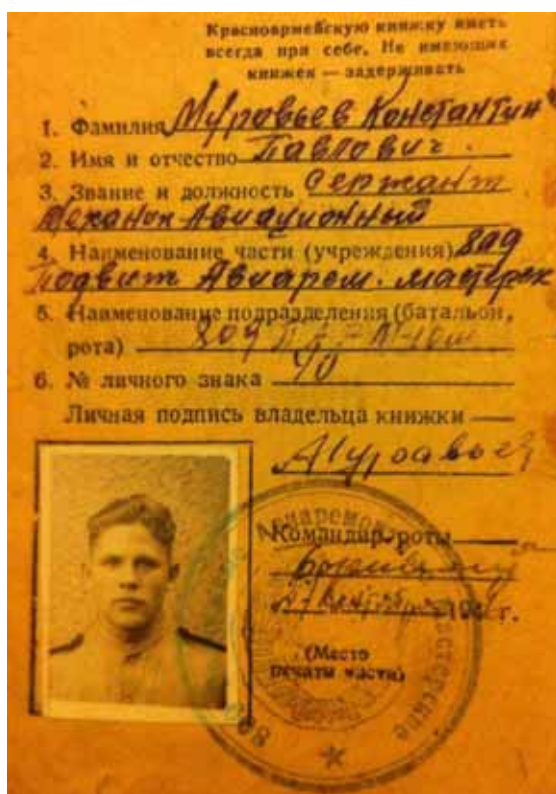 Красноармейскую книжку иметь
всегда при себе. Не имеющих
книжек — задерживать
1. Фамилия Муравьев Константин
2. Имя и отчество Павлович.
3. Звание и должность Сержант
Механик Авиационный
4. Наименование части (учреждения) 809
Подвиж Авиарем. мастерск
5. Наименование подразделения (батальон,
рота) 809
6. № личного знака
Личная подпись владельца книжки
Муравьев
Командир роты
194 г.
(Место
печати части)